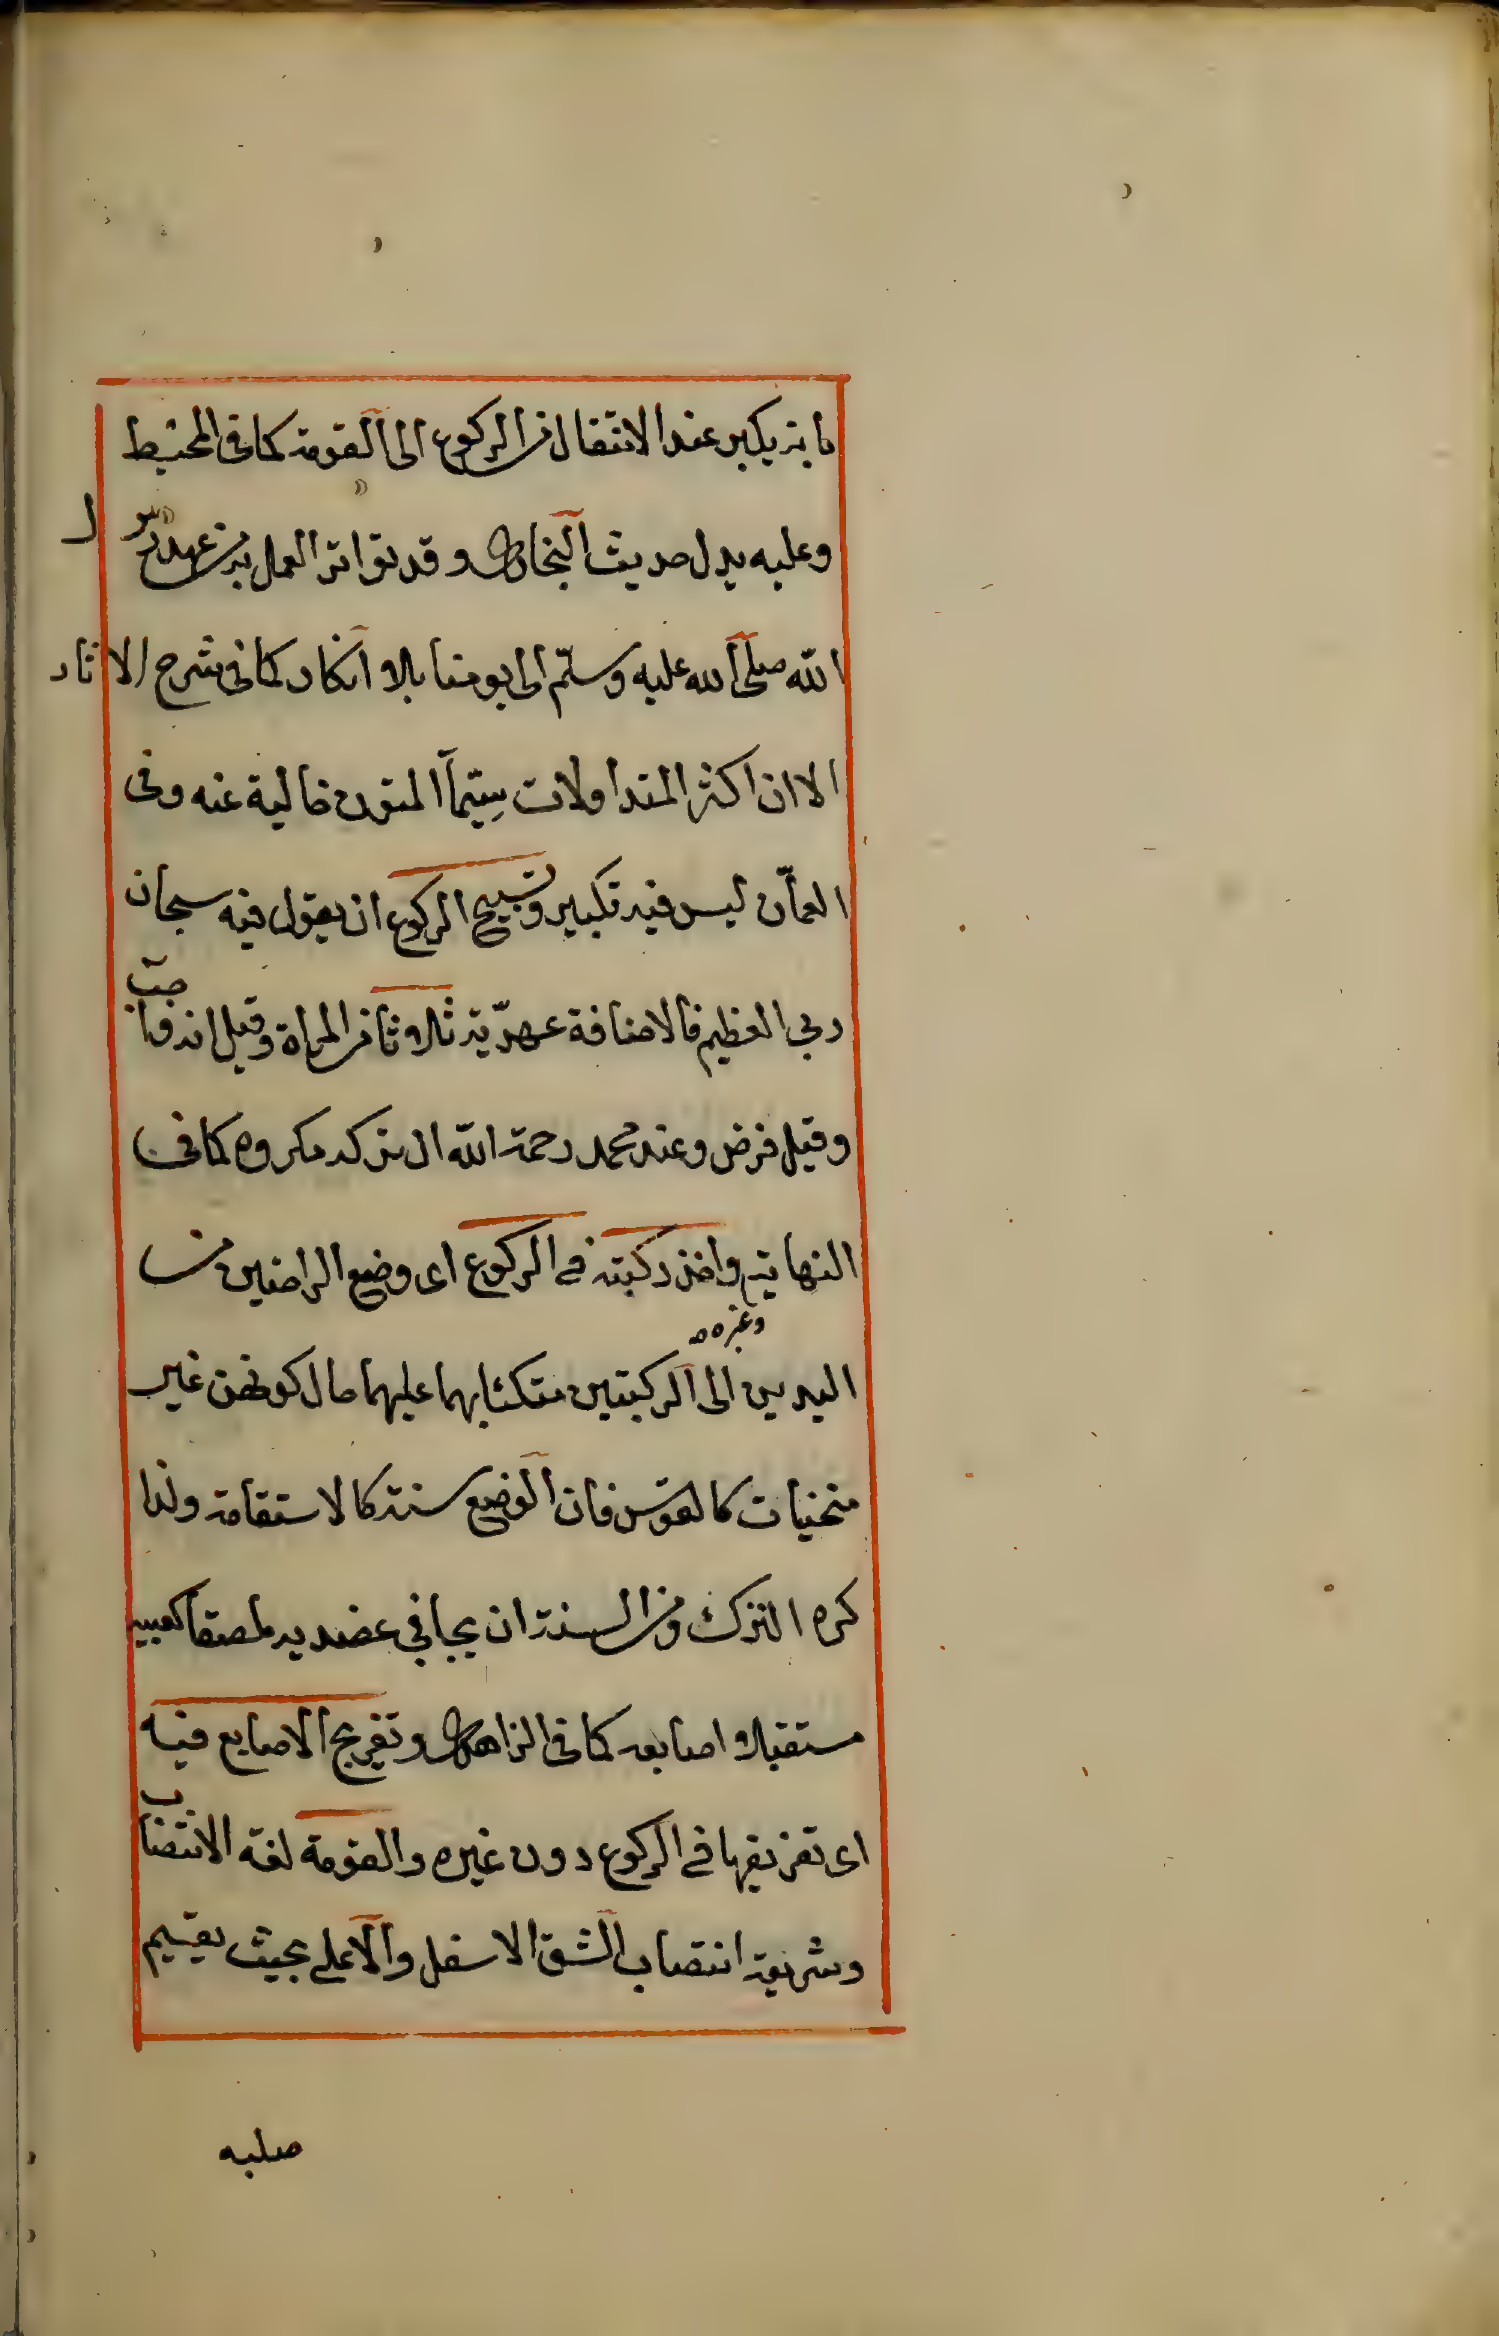 بانه يكبر عند الانتقال من الركوع الى القومة كما فى المحيط
وعليه يدل حديث البخارى وقد تواتر العمل به من عهد رسول
الله صلى الله عليه وسلم الى يومنا بلا انكار كما فى شرح الاثار
الا ان اكثر المتداولات سيما المتون خالية عنه وفى
ليس فيه تكبير وتسبيح الركوع ان يقول فيه سبحان
ربي العظيم فالاضافة عهدية ثلاثا من المراة وقيل انه واجب
وقيل فرض وعند محمد رحمة الله ان تركه مكروه كما فى
النهاية واخذ ركبته في الركوع اى وضع الراحتين من
وغيره
اليدين الى الركبتين متكئا بهما عليهما حال كونهن غير
منحنيات كالقوس فان الوضع سنة كالاستقامة ولذا
كره الترك ومن السنة ان يجافي عضديه ملصقا كعبيه
مستقبلا اصابعه كما فى الزاهدى وتفريج الاصابع فيه
اى تفريقها في الركوع دون غيره والقومة لغة الانتصاب
وشريعة انتصاب الشق الاسفل والاعلى بحيث يقيم
صلبه